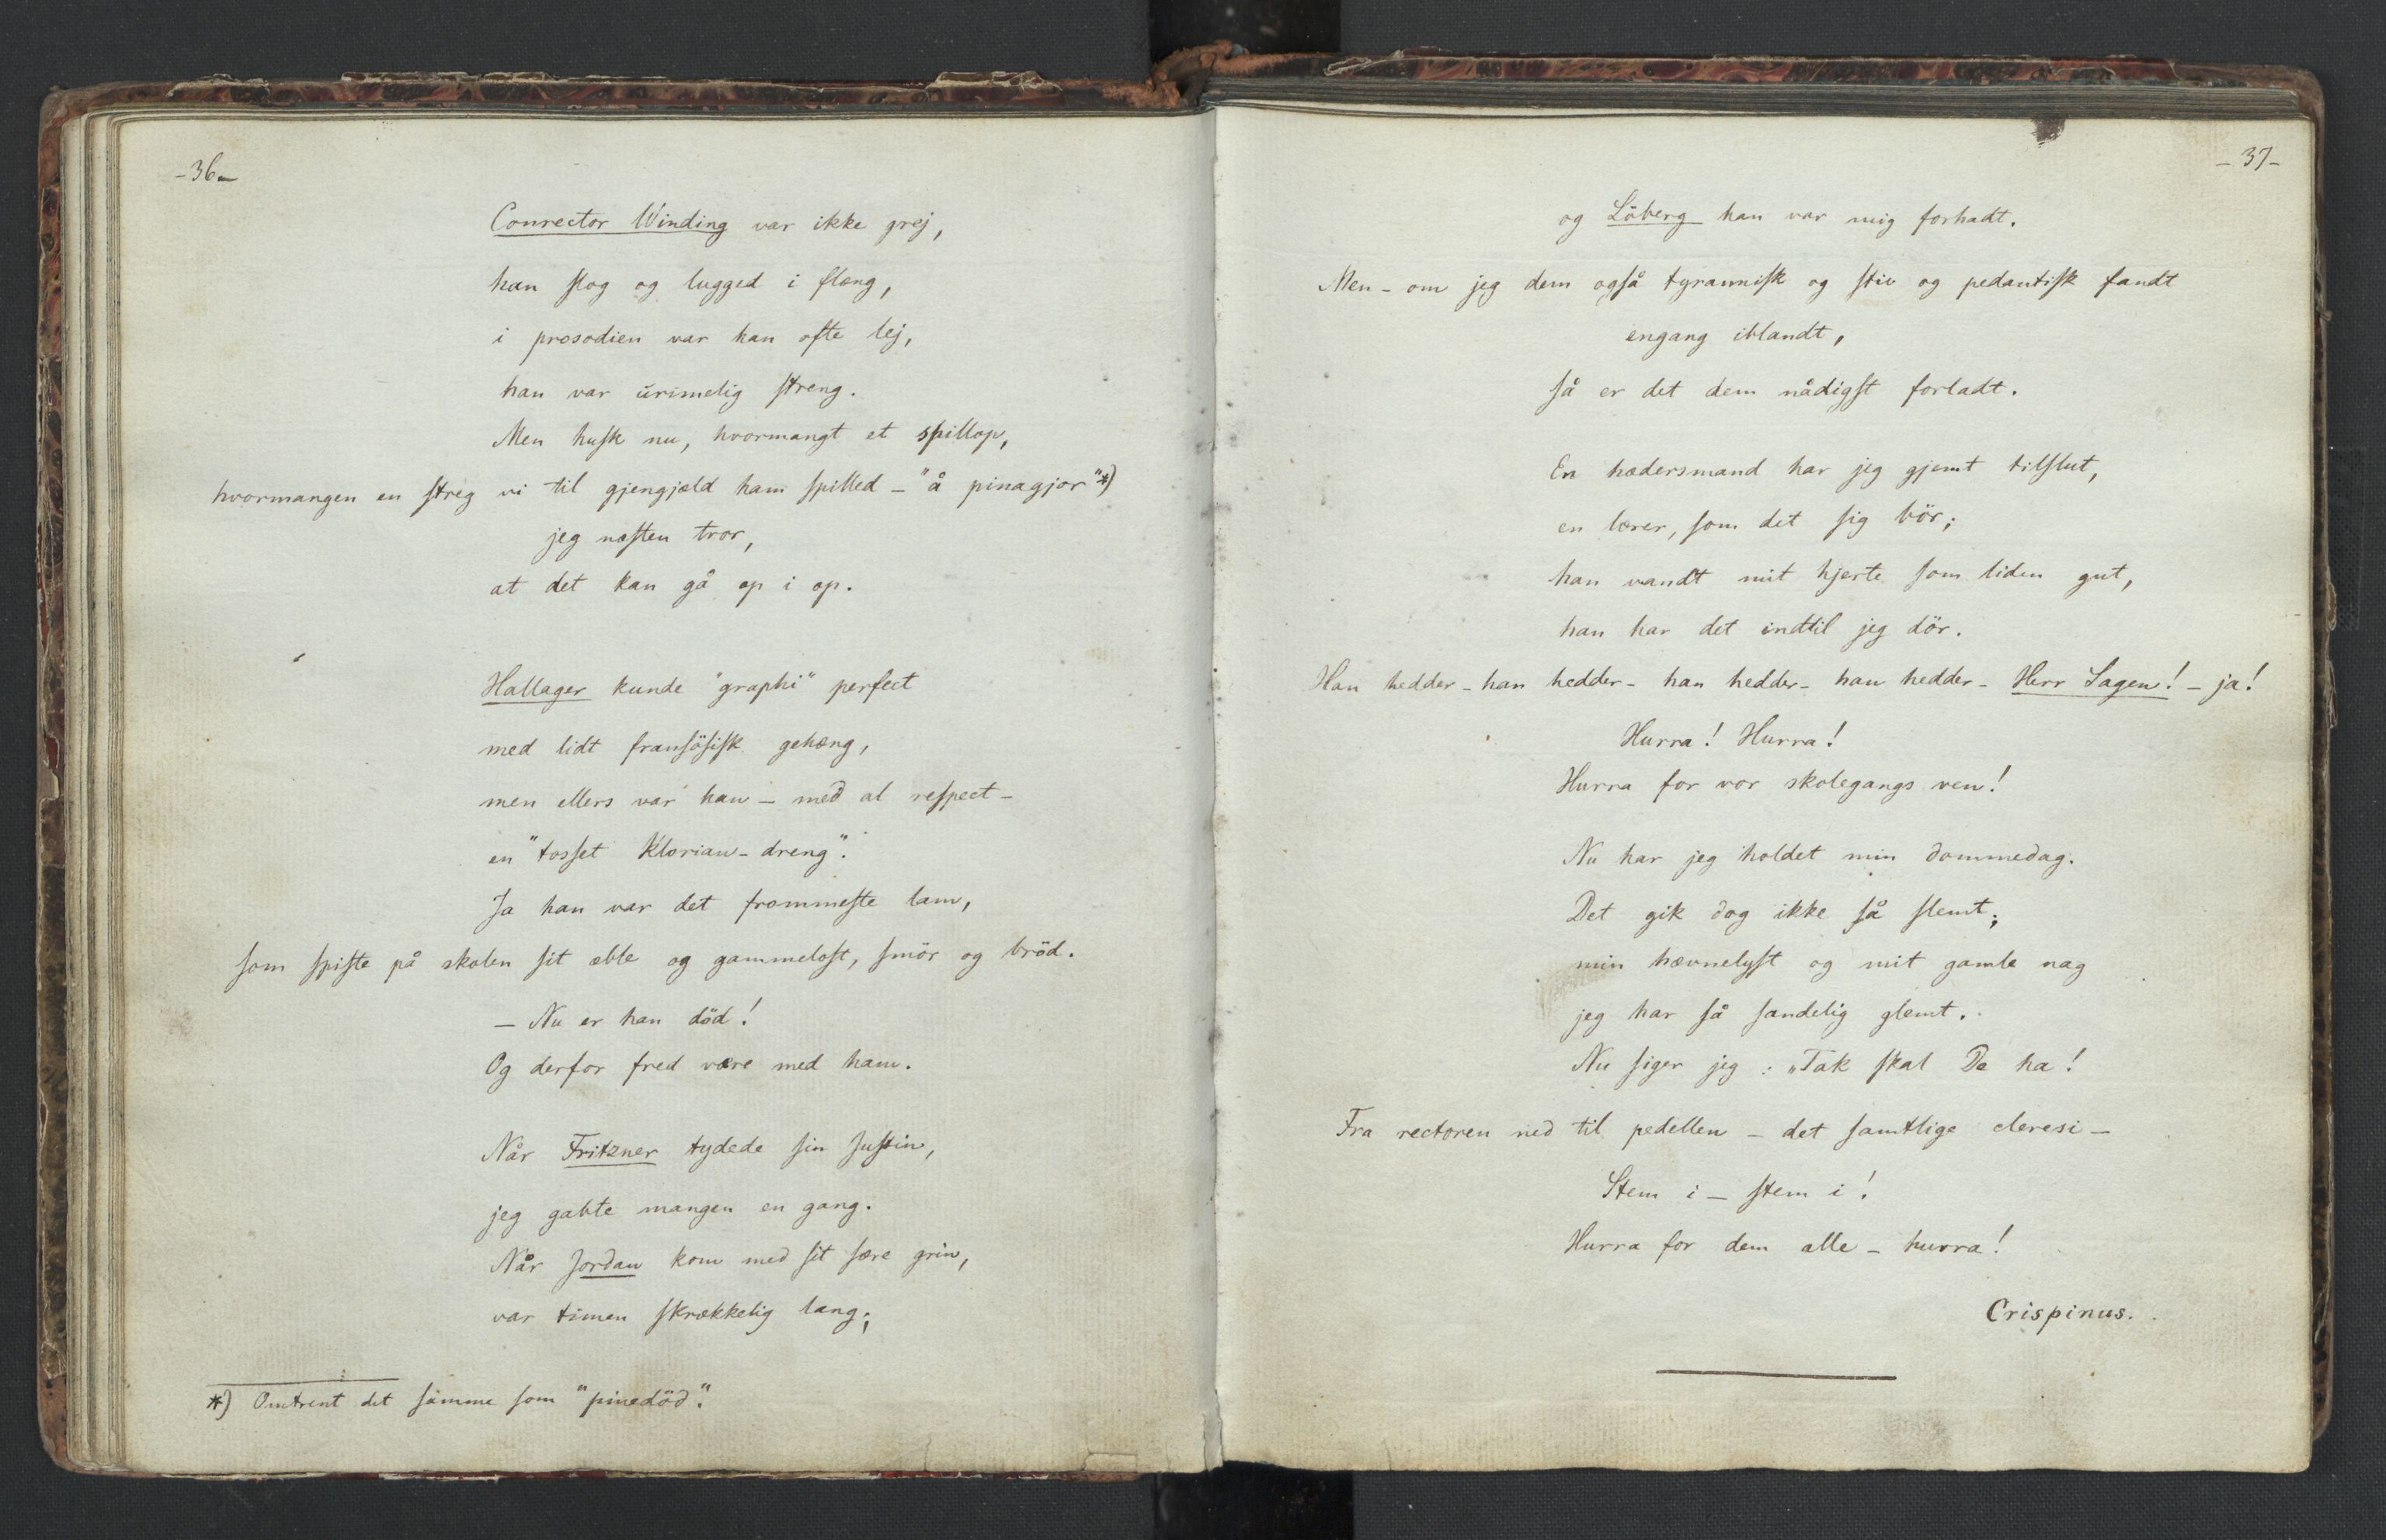 -36-
Conrector Winding var ikke grej,
han slog og lugged i flæng,
i prosodien var han ofte lej,
han var urimelig streng.
Men husk nu, hvormangt et spillop,
hvormangen en streg vi til gjengjæld ham spilled - "å pinagjor" *)
jeg næsten tror,
at det kan gå op i op.
Hallager kunde "graphi" perfect
med lidt fransösisk gehæng,
men ellers var han - med al respect -
en "tosset Klorian-dreng".
Ja han var det frommeste lam,
som spiste på skolen sit æble og gammelost, smör og bröd.
- Nu er han död!
Og derfor fred være med ham.
Når Fritzner tydede sin Justin,
jeg gabte mangen en gang.
Når Jordan kom med sit sære grin,
var timen skrækkelig lang;
*) Omtrent det samme som "pinedöd".
- 37-
og Löberg han var mig forhadt.
Men - om jeg dem også tyrannisk og stiv og pedantisk fandt
engang iblandt,
så er det dem nådigst forladt.
En hædersmand har jeg gjemt tilslut,
en lærer, som det sig bör;
han vandt mit hjerte som liden gut,
han har det indtil jeg dör.
Han hedder - han hedder - han hedder - han hedder - Herr Sagen! - ja!
Hurra! Hurra!
Hurra for vor skolegangs ven!
Nu har jeg holdet min dommedag.
Det gik dog ikke så slemt;
min hævnelyst og mit gamle nag
jeg har så sandelig glemt.
Nu siger jeg: „Tak skal De ha!
Fra rectoren ned til pedellen - det samtlige cleresi -
Stem i - stem i!
Hurra for dem alle - hurra!
Crispinus.